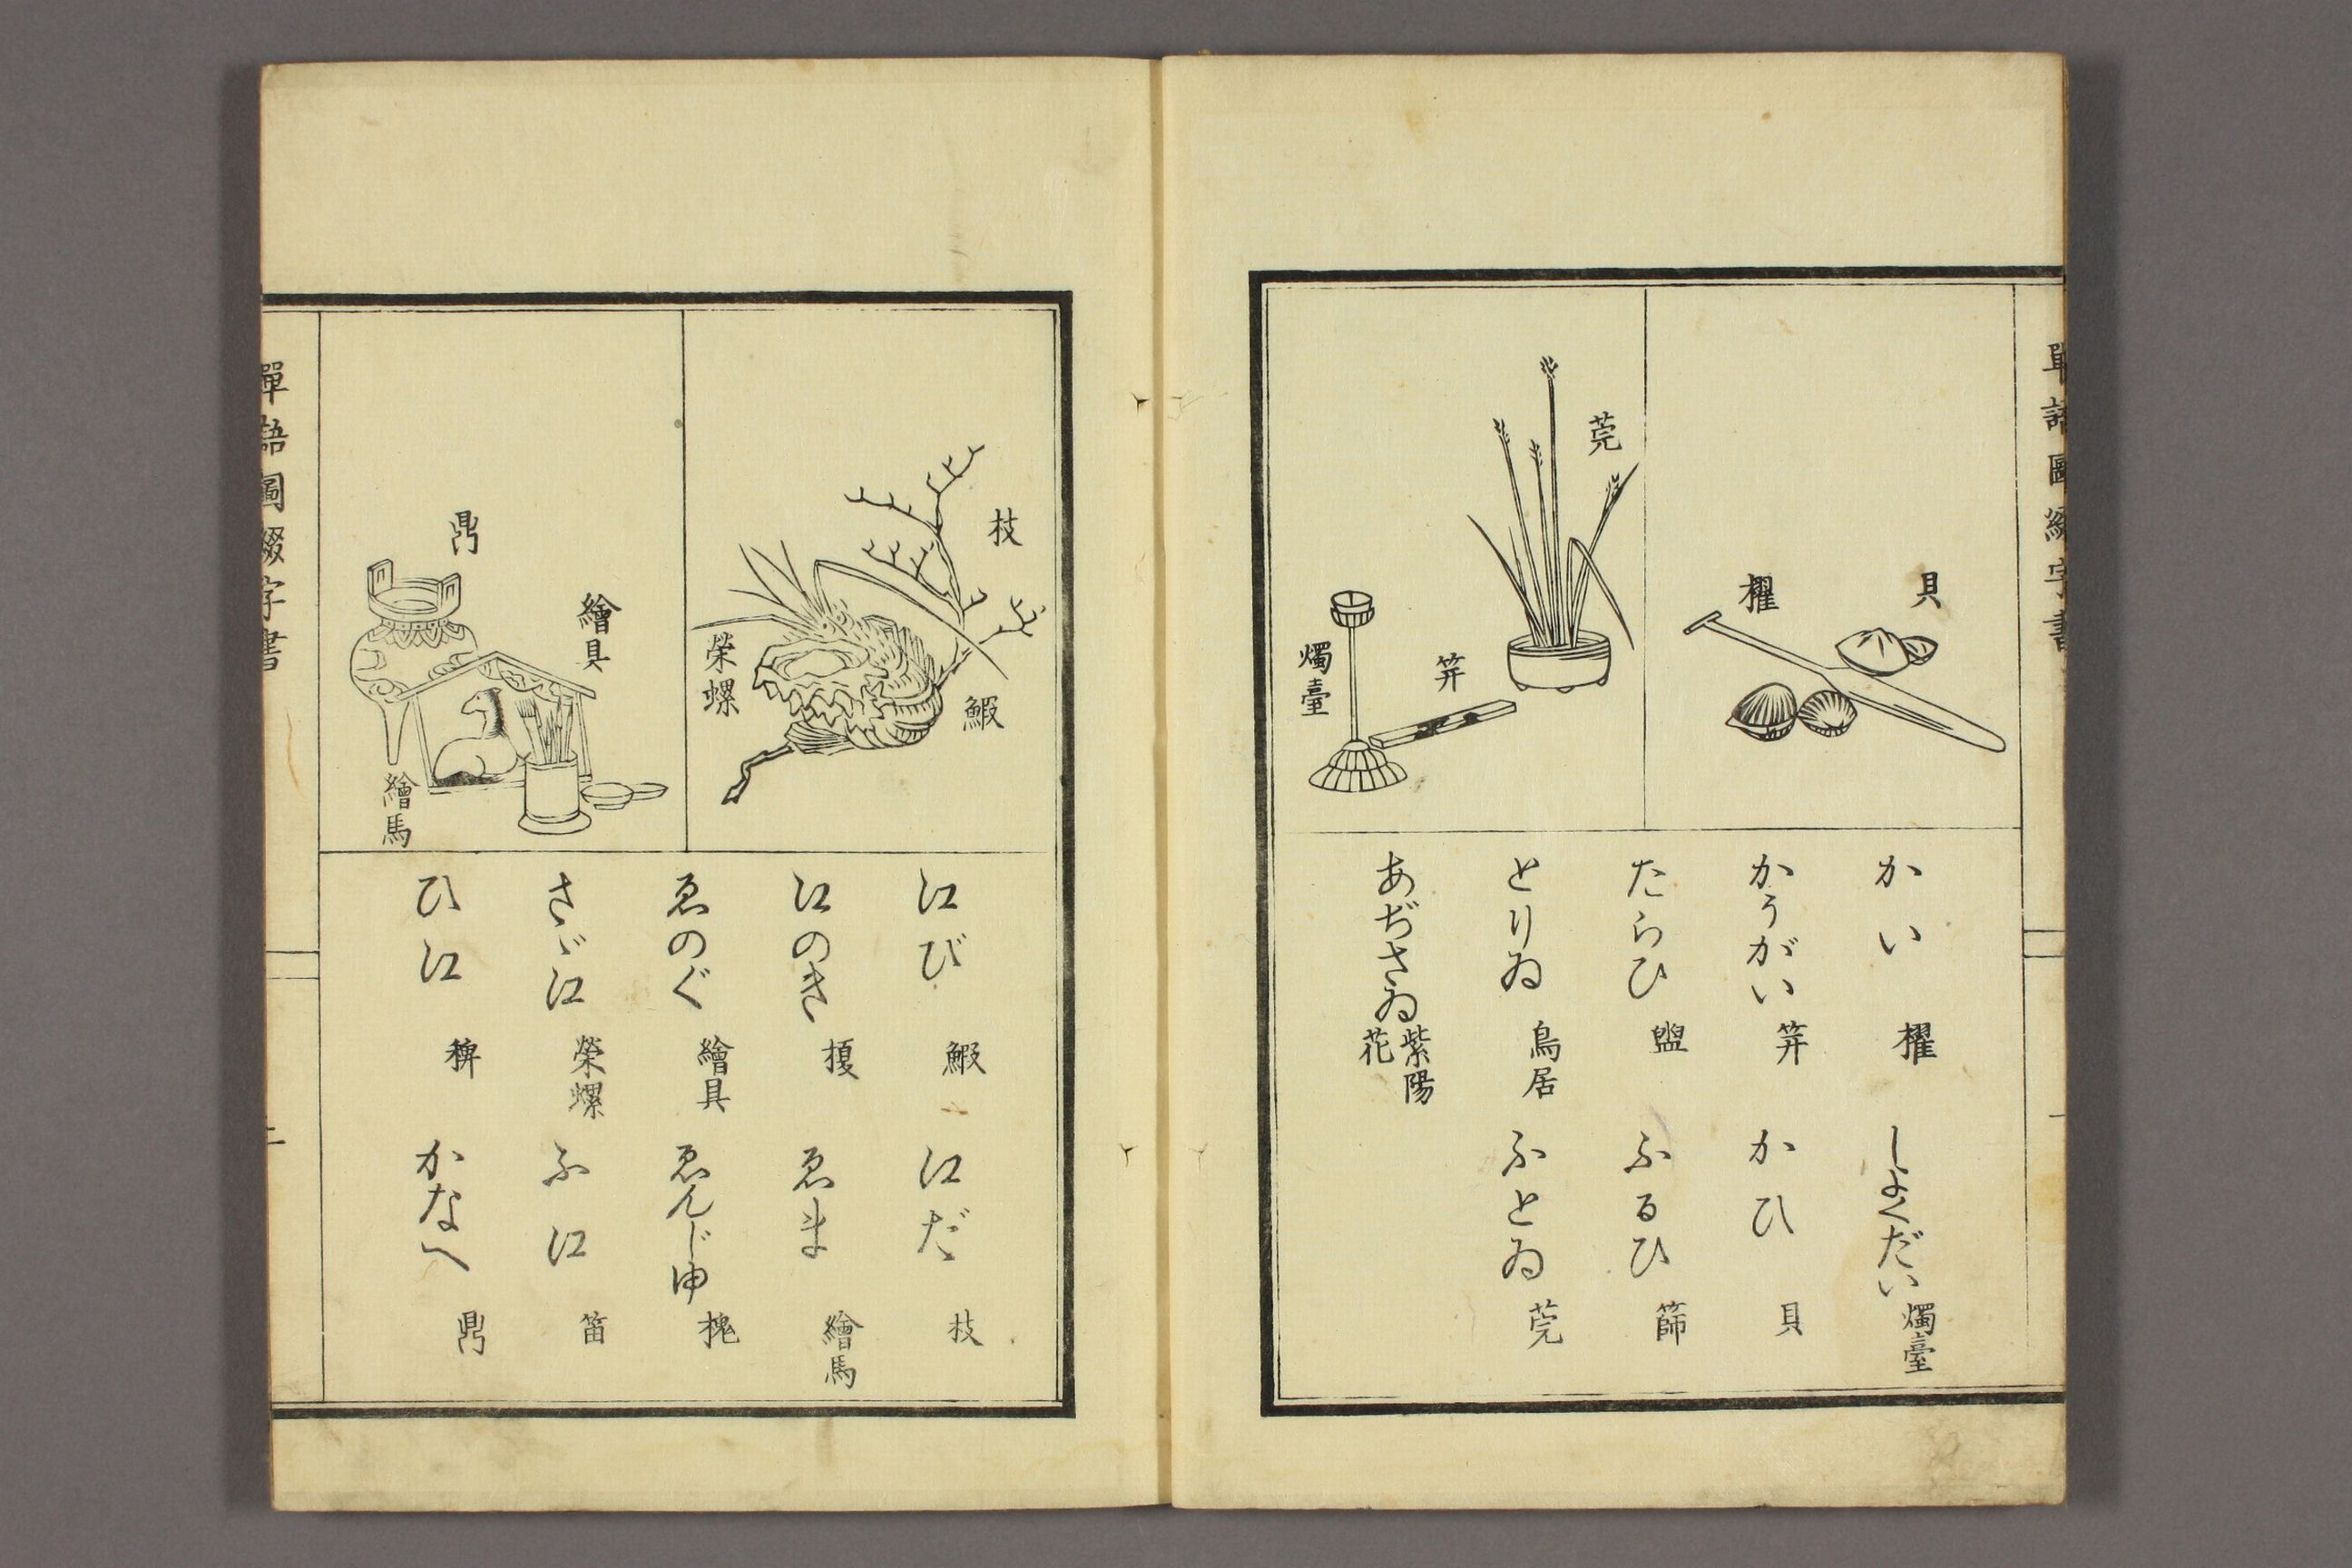 單語圖綴字書
貝
櫂
莞
笄
燭臺
かい 櫂
しよくだい 燭臺
かうがい 笄
かひ 貝
たらひ 盥
ふるひ 篩
とりゐ 鳥居
ふとゐ 莞
あぢさゐ 紫陽花
枝
鰕
榮螺
繪具
鼎
繪馬
江び 鰕
江だ 枝
江のき 榎
ゑま 繪馬
ゑのぐ 繪具
ゑんじゆ 槐
さゞ江 榮螺
ふ江 笛
ひ江 稗
かなへ 鼎
單語圖綴字書